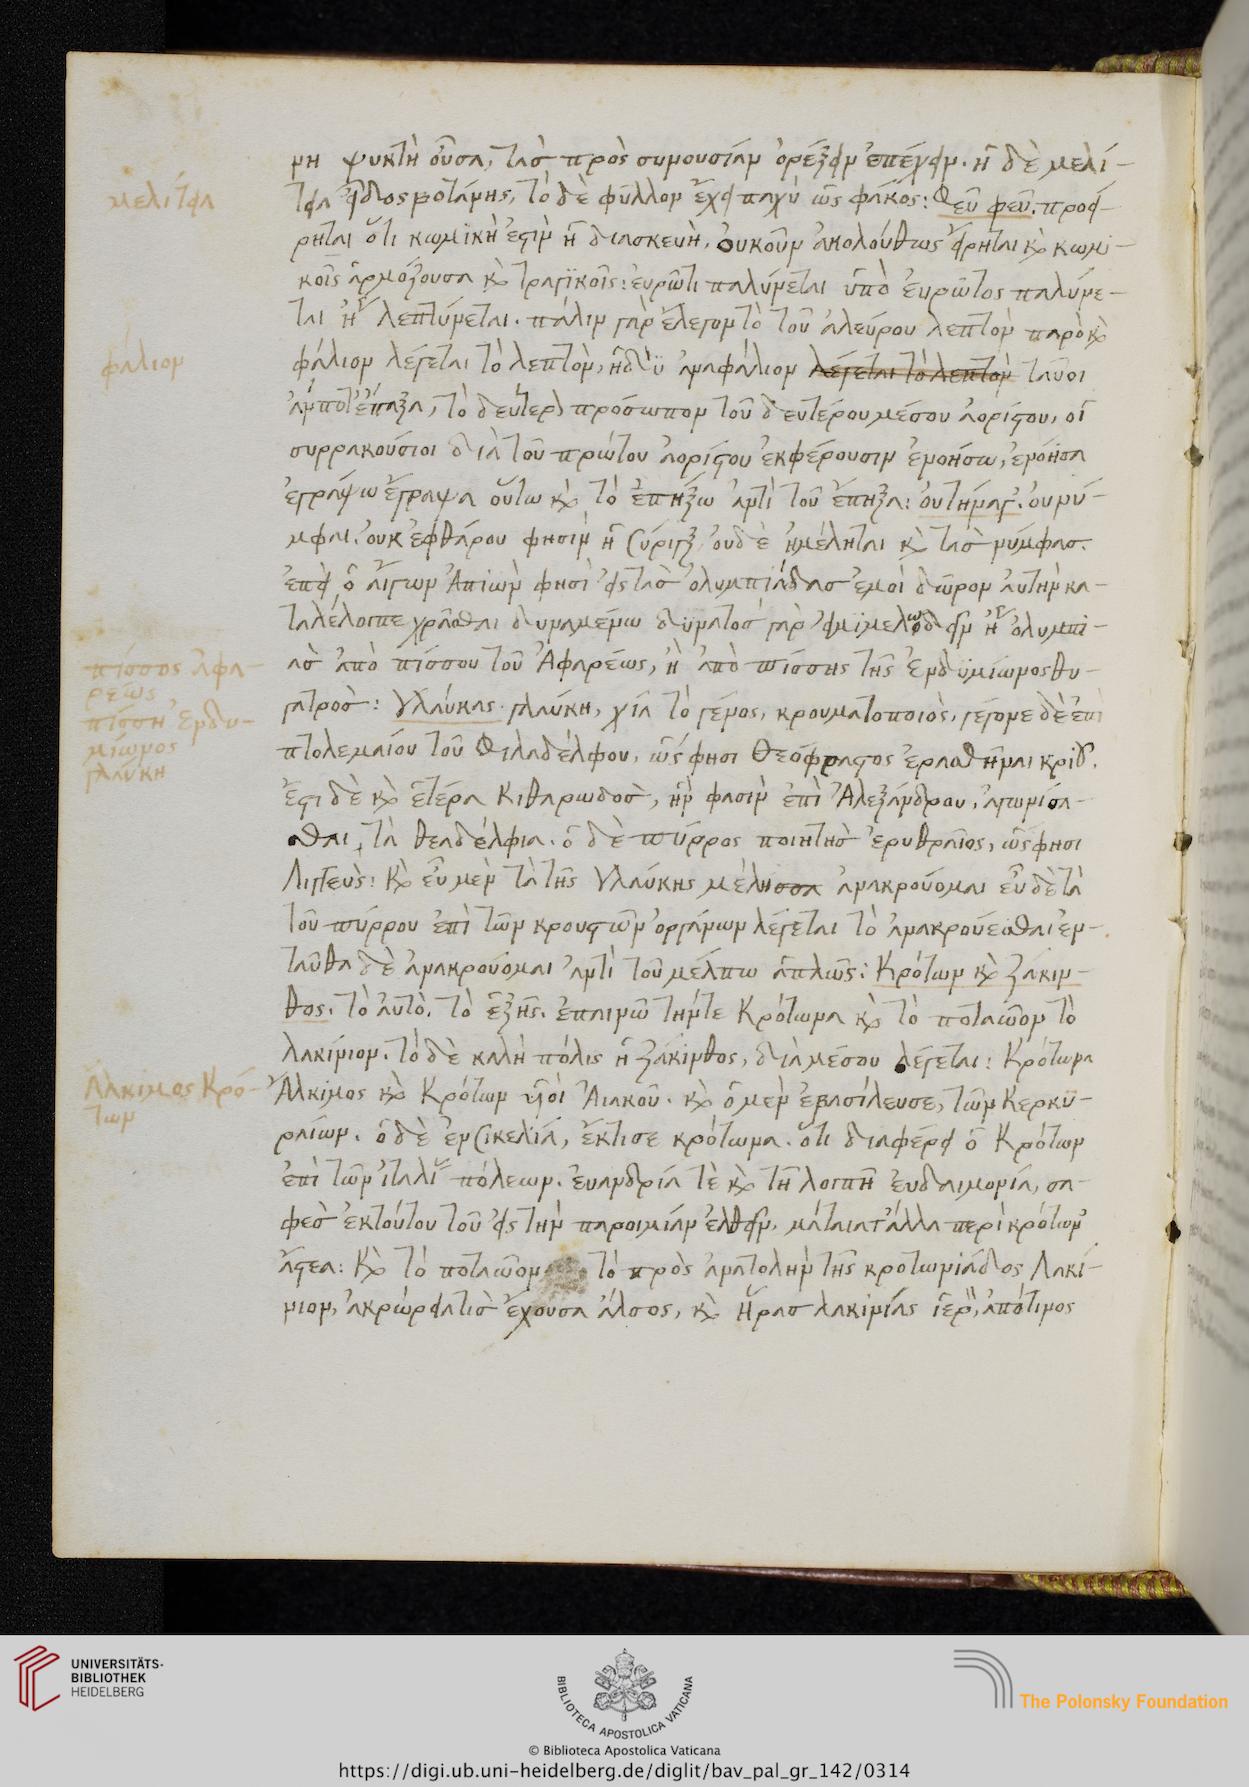 νη ψυκτὴ οὖσα, τὰσ πρὸς συνουσίαν ὀρέξειν ἐπέχειν. ἡ δὲ μελί-
μελίτεια
τεια εἶδος βοτάνης, τὸ δὲ φύλλον ἔχει παχὺ ὡς φακός: Φεῦ φεῦ. προεί-
ρηται ὅτι κωμικὴ ἐστὶν ἡ διασκευὴ, οὐκοῦν ἀκολούθως εἴρηται καὶ κωμι-
κοῖς ἁρμόζουσα καὶ τραγϊκοῖς: εὐρῶτι παλύνεται ὑπὸ εὐρῶτος παλύνε-
ται ἢ λεπτύνεται. πάλιν γὰρ ἔλεγον τὸ τοῦ ἀλεύρου λεπτὸν παρὸ καὶ
φάλιον
φάλιον λέγεται τὸ λεπτὸν, ἀναφάλιον λέγεται τὸ λεπτὸν
τὸ δεύτερον πρόσωπον τοῦ δευτέρου μέσου ἀορίστου, οἱ
συρρακούσιοι διὰ τοῦ πρώτου ἀορίστου ἐκφέρουσιν ἐνοήσω, ἐνόησα
ἐγράψω ἔγραψα οὕτω καὶ τὸ ἐπήξω ἀντὶ τοῦ ἔπηξα: οὐ νύ-
μφαι. οὐκ ἐφθάρου φησὶν ἡ Σύριγξ, οὐδὲ ἠμέληται καὶ τὰσ νύμφασ.
ἐπεὶ ὁ αἴγων Ἀπιὼν φησὶ εἰς τὰσ ὀλυμπιάδασ ἐμοὶ δῶρον αὐτὴν κα-
ταλέλοιπε χρᾶσθαι δυναμένω δϋνατοσ γὰρ εἰμϊ μελωδεῖν ἢ ὀλυμπι-
πίσσος Ἀφα-
ρεως
ὰσ ἀπὸ πίσσου τοῦ Ἀφαρέως, ἢ ἀπὸ πίσσης τῆς Ἐνδϋμίωνος θυ-
πίσση Ἐνδυ-
μίωνος
γατρὸσ: Γλαύκας. γλαύκη, χία τὸ γένος, κρουματοποιὸς, γέγονε δὲ ἐπὶ
γλαύκη
πτολεμαίου τοῦ Φιλαδέλφου, ὥς φησι Θεόφραστος ἐρασθῆναι
ἔστι δὲ καὶ ἑτέρα Κιθαρωδοσ, ἥν φασὶν ἐπὶ Ἀλεξάνδρου, ἀγωνίσα-
σθαι, τὰ θεαδέλφια. ὁ δὲ πύρρος ποιητὴσ ἐρυθραῖος, ὥς φησι
Λιγγεὺς: καὶ εὖ μὲν τὰ τῆς Γλαύκης μέλησσα ἀνακρούομαι εὖ δὲ τὰ
τοῦ πύρρου ἐπὶ τῶν κρουστῶν ὀργάνων λέγεται τὸ ἀνακρούεσθαι ἐν-
ταῦθα δὲ ἀνακρούομαι ἀντὶ τοῦ μέλπω ἁπλῶς: Κρότων καὶ Ζάκιν-
θος. τὸ αὐτὸ. τὸ ἑξῆς. ἐπαινῶ τήν τε Κρότωνα καὶ τὸ ποταῶον τὸ
λακίνιον. τὸ δὲ καλὴ πόλις ἡ ζάκινθος, διὰ μέσου λέγεται: Κρότωνα
Ἄλκιμος Κρό-
των
Ἄλκιμος καὶ Κρότων υἱοὶ Αἰακοῦ. καὶ ὁ μὲν ἐβασίλευσε, τῶν Κερκϋ-
ραίων. ὁ δὲ ἐν Σικελία, ἔκτισε κρότωνα. ὅτι διαφέρει ὁ Κρότων
ἐπὶ τῶν πόλεων. εὐανδρία τὲ καὶ τῆ λοιπῆ εὐδαιμονία, σα-
φεσ ἐκ τούτου τοῦ εἰς τὴν παροιμίαν ἐλθεῖν. μάταια τ' ἄλλα περὶ κρότων'
ἄστεα: καὶ τὸ ποταῶον τὸ πρὸς ἀνατολὴν τῆς κροτωνιάδος Λακί-
νιον, ἔχουσα ἄλσος, καὶ Ἥρασ λακινίας ἱερὸν, ἀπότιμος
UNIVERSITÄTS-
BIBLIOTHEK
HEIDELBERG
BIBLIOTECA APOSTOLICA VATICANA
The Polonsky Foundation
© Biblioteca Apostolica Vaticana
https://digi.ub.uni-heidelberg.de/diglit/bav_pal_gr_142/0314